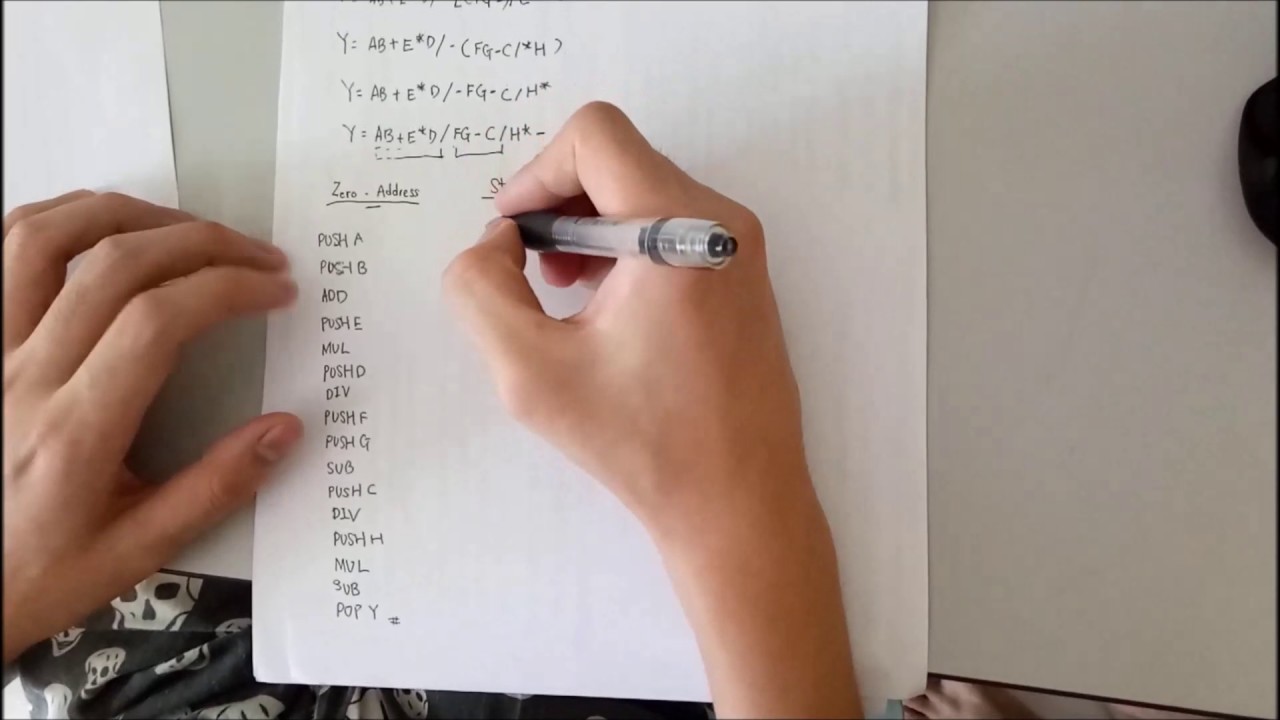 Y= AB+E*D/-(FG-C/*H)
Y= AB+E*D/-FG-C/H*
Y= AB+E*D/FG-C/H*-
Zero-Address
PUSH A
PUSH B
ADD
PUSH E
MUL
PUSH D
DIV
PUSH F
PUSH G
SUB
PUSH C
DIV
PUSH H
MUL
SUB
POP Y #